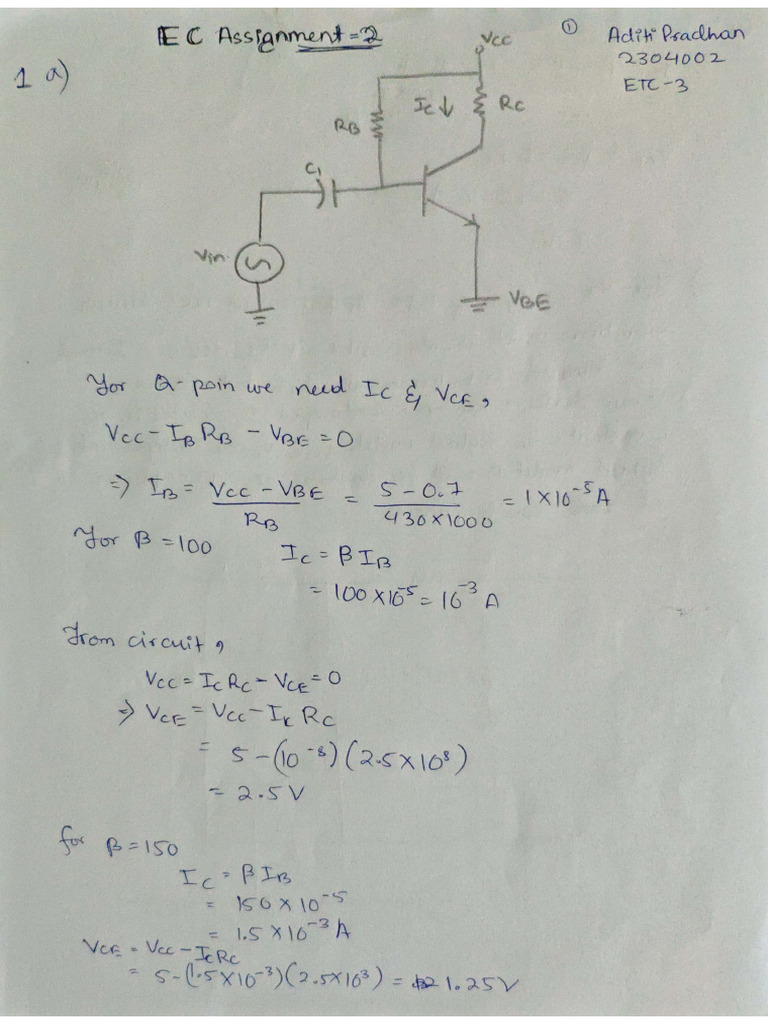 EC Assignment-2
①
Aditi Pradhan
2304002
ETC-3
1 a)
VCC
IC↓
RC
RB
C1
Vin
VBE
For Q-poin we need IC & VCE,
VCC - IB RB - VBE = 0
⇒ IB = (VCC - VBE)/RB = (5 - 0.7)/(430×1000) = 1×10⁻⁵A
For β = 100
IC = β IB
= 100×10⁻⁵ = 10⁻³ A
From circuit,
VCC = IC RC - VCE = 0
⇒ VCE = VCC - IC RC
= 5 - (10⁻³)(2.5×10³)
= 2.5V
for β = 150
IC = β IB
= 150×10⁻⁵
= 1.5×10⁻³A
VCE = VCC - IC RC
= 5 - (1.5×10⁻³)(2.5×10³) = 1.25V